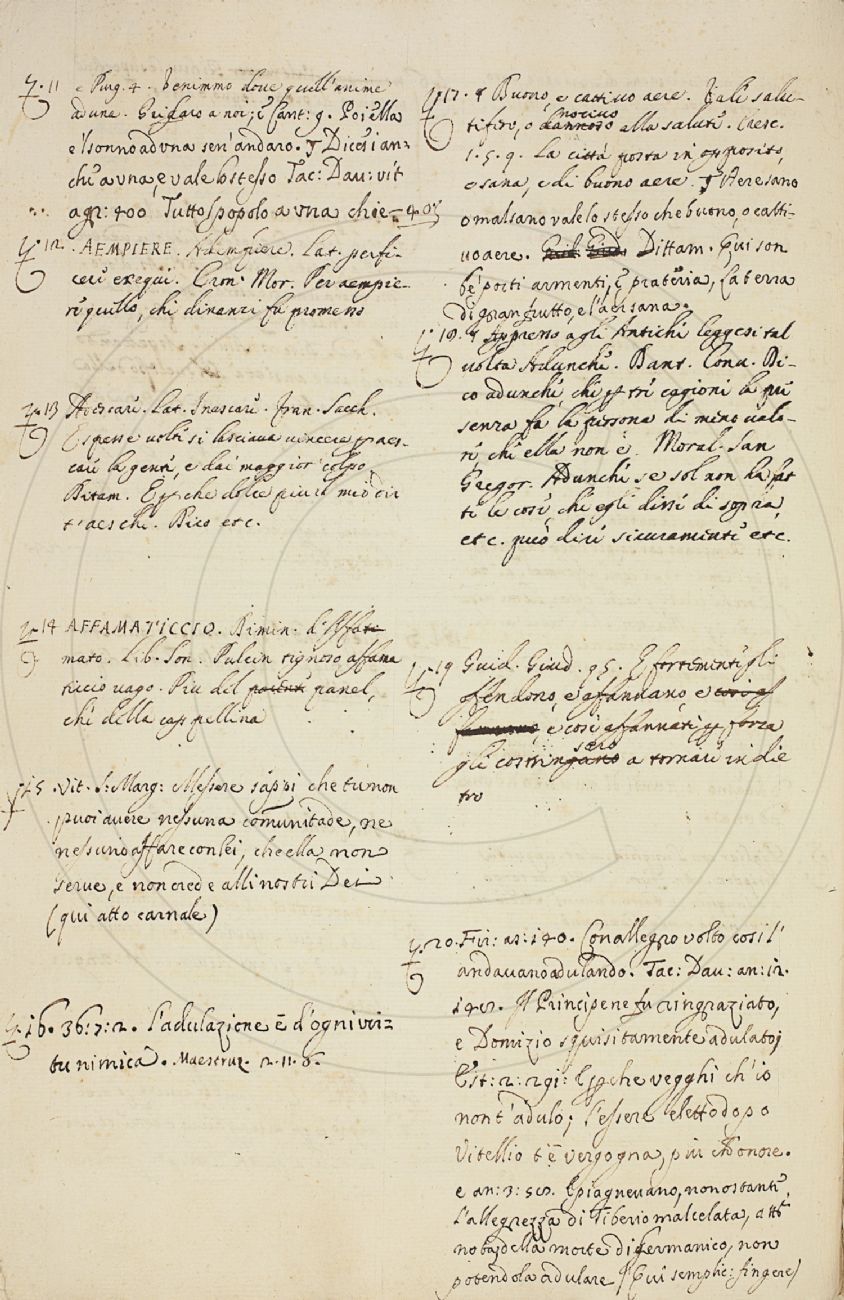 11 e Purg. 4. Venimmo doue quell'anime
ad una. Gridaro a noi; E Cant: 9. Poi ella
e'l sonno ad vna sen' andaro. § Dicesi an=
che a vna, e vale lo stesso Tac: Dau: vit
agr: 400 Tutto'l popolo a vna chie=
12. AEMPIERE. Adempiere. Lat. perfi-
cere exequi. Cron. Mor. Per aempie-
re quello, che dinanzi fu promesso
13 Aescare. Lat. Inescare. Fran. Sacch.
Spesse uolte si lasciaua uincere p aes-
care la gente, e dai maggior colpo.
Ditam. E che dolce piu
t'aeschi. Pico etc.
14 AFFAMATICCIO. Dimin. d'Affa
mato. Lib. Son. Pulcin tignoso affama
ticcio uago. Piu del panel,
che della cappellina
15. Vit. S: Marg: Messere sappi che tu non
puoi auere nessuna comunitade, ne
nessuno affare con lei, che ella non
serue, e non crede alli nostri Dei
(qui atto carnale)
16. 36:7:2. l'adulazione è d'ogni vir=
tu nimica. Maestruz. 2.11.6.
17. § Buono, e cattiuo aere. Vale salu-
tifero, o nociuo dannoso alla salute. Cresc.
1.5.9. La città posta in opposito,
e sana, e di buono aere. § Aere sano
o malsano vale lo stesso che buono, o catti-
uo aere. Guid. Giud. Dittam. Qui son
be' porti armenti, e prateria, La terra
di gran frutto, e l'aer sana.
18. § Appresso agli Antichi leggesi tal
uolta Adunche. Dant. Conu. Di-
co adunche che p tre cagioni la pre
senza fa la persona di meno ualo-
re che ella non è. Moral. San
Gregor. Adunche se sol non ha fat
te le cose, che egli disse di sopra,
etc. può dire sicuramente etc.
19 Guid. Giud. 95. E fortemente gli
offendono, e affannano, e cosi af
fannano, e cosi affannati p forza
sero
gli costringano a tornare indie
tro
20. Fir: as: 140. Con allegro volto cosi l'
andauano adulando. Tac: Dau: an: 12.
Il Principe ne fu ringraziato,
e Domizio squisitamente adulato;
Est: 2: 291: E pche vegghi ch'io
non t'adulo; l'essere eletto dopo
Vitellio t'è vergogna, piu ch'onore.
e an: 3: Epiagneuano, nonostante
l'allegrezza di Tiberio mal celata,
della morte di Germanico, non
potendola adulare (Qui semplic: fingere)